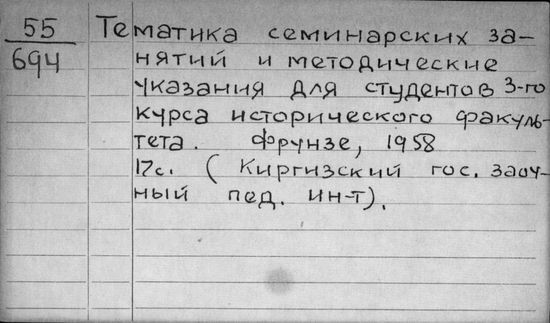 55
694
Тематика семинарских за-
нятий и методические
указания для студентов 3-го
курса исторического факуль-
тета. Фрунзе, 1958
17с. (Киргизский гос. заоч-
ный пед. ин-т).